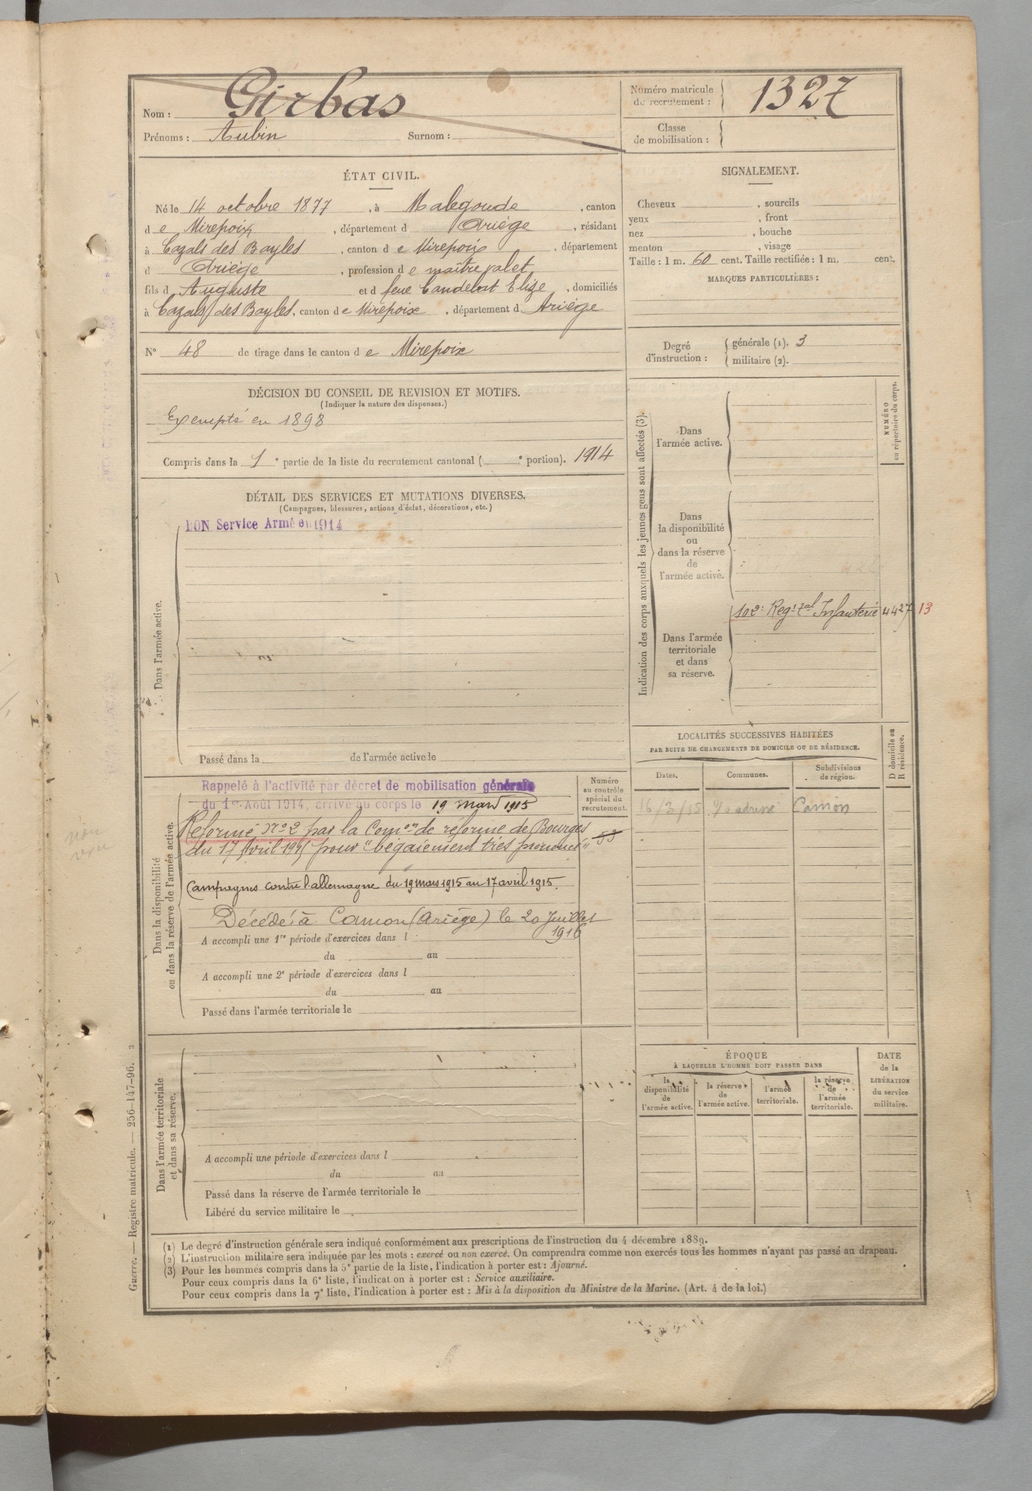 Nom : Girbas
Prénoms : Aubin Surnom :
Numéro matricule de recrutement : 1327
Classe de mobilisation :
ÉTAT CIVIL.
Né le 14 octobre 1877, à Malegoude, canton
de Mirepoix, département d Ariège, résidant
à Cazals des Bayles, canton de Mirepoix, département
d Ariège, profession de maître valet
fils d Auguste et d feue Candelort Elize, domiciliés
à Cazals des Bayles, canton de Mirepoix, département d Ariège
N° 48 de tirage dans le canton de Mirepoix
SIGNALEMENT.
Cheveux , sourcils
yeux , front
nez , bouche
menton , visage
Taille : 1 m. 60 cent. Taille rectifiée : 1 m. cent.
MARQUES PARTICULIÈRES :
Degré d'instruction : générale (1). 3
militaire (2).
DÉCISION DU CONSEIL DE REVISION ET MOTIFS.
(Indiquer la nature des dispenses.)
Exempté en 1898
Compris dans la 1e partie de la liste du recrutement cantonal ( e portion). 1914
DÉTAIL DES SERVICES ET MUTATIONS DIVERSES.
(Campagnes, blessures, actions d'éclat, décorations, etc.)
BON Service Armé en 1914
Dans l'armée active.
Passé dans la de l'armée active le
Indication des corps auxquels les jeunes gens sont affectés (3).
Dans l'armée active.
NUMÉRO au répertoire du corps.
Dans la disponibilité ou dans la réserve de l'armée active.
102e Regt Infanterie 4427 13
Dans l'armée territoriale et dans sa réserve.
LOCALITÉS SUCCESSIVES HABITÉES
PAR SUITE DE CHANGEMENTS DE DOMICILE OU DE RÉSIDENCE.
Dates. Communes. Subdivisions de région. D domicile ou R résidence.
16/3/15 Camon
Dans la disponibilité ou dans la réserve de l'armée active.
Rappelé à l'activité par décret de mobilisation générale
du 1er Août 1914, arrivé au corps le 19 mars 1915
Réformé n° 2 par la Comon de réforme de Bourges
du 17 Avril 1915 pour "bégaiement très prononcé"
Campagnes contre l'allemagne du 19 mars 1915 au 17 avril 1915.
Décédé à Camon (Ariège) le 20 Juillet
1916
Numéro au contrôle spécial du recrutement.
53
A accompli une 1re période d'exercices dans l
du au
A accompli une 2e période d'exercices dans l
du au
Passé dans l'armée territoriale le
Dans l'armée territoriale et dans sa réserve.
A accompli une période d'exercices dans l
du au
Passé dans la réserve de l'armée territoriale le
Libéré du service militaire le
ÉPOQUE
À LAQUELLE L'HOMME DOIT PASSER DANS
la disponibilité de l'armée active.
la réserve de l'armée active.
l'armée territoriale.
la réserve de l'armée territoriale.
DATE de la LIBÉRATION du service militaire.
(1) Le degré d'instruction générale sera indiqué conformément aux prescriptions de l'instruction du 4 décembre 1889.
(2) L'instruction militaire sera indiquée par les mots : exercé ou non exercé. On comprendra comme non exercés tous les hommes n'ayant pas passé au drapeau.
(3) Pour les hommes compris dans la 5e partie de la liste, l'indication à porter est : Ajourné.
Pour ceux compris dans la 6e liste, l'indication à porter est : Service auxiliaire.
Pour ceux compris dans la 7e liste, l'indication à porter est : Mis à la disposition du Ministre de la Marine. (Art. 4 de la loi.)
Guerre. — Registre matricule. — 256-147-96.